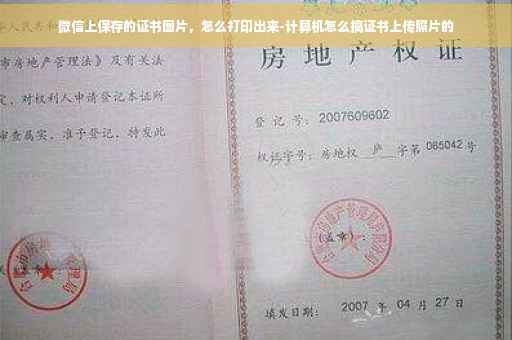 微信上保存的证书图片，怎么打印出来-计算机怎么搞证书上传照片的
人民共和
市房地产管理法》及有关法
定，对权利人申请登记本证所
审查属实，准予登记，特发此
房地产权
登记号：2007609602
权证字号：房地权 庐 字第 085042 号
（盖章）：
填发日期： 2007 年 04 月 27 日